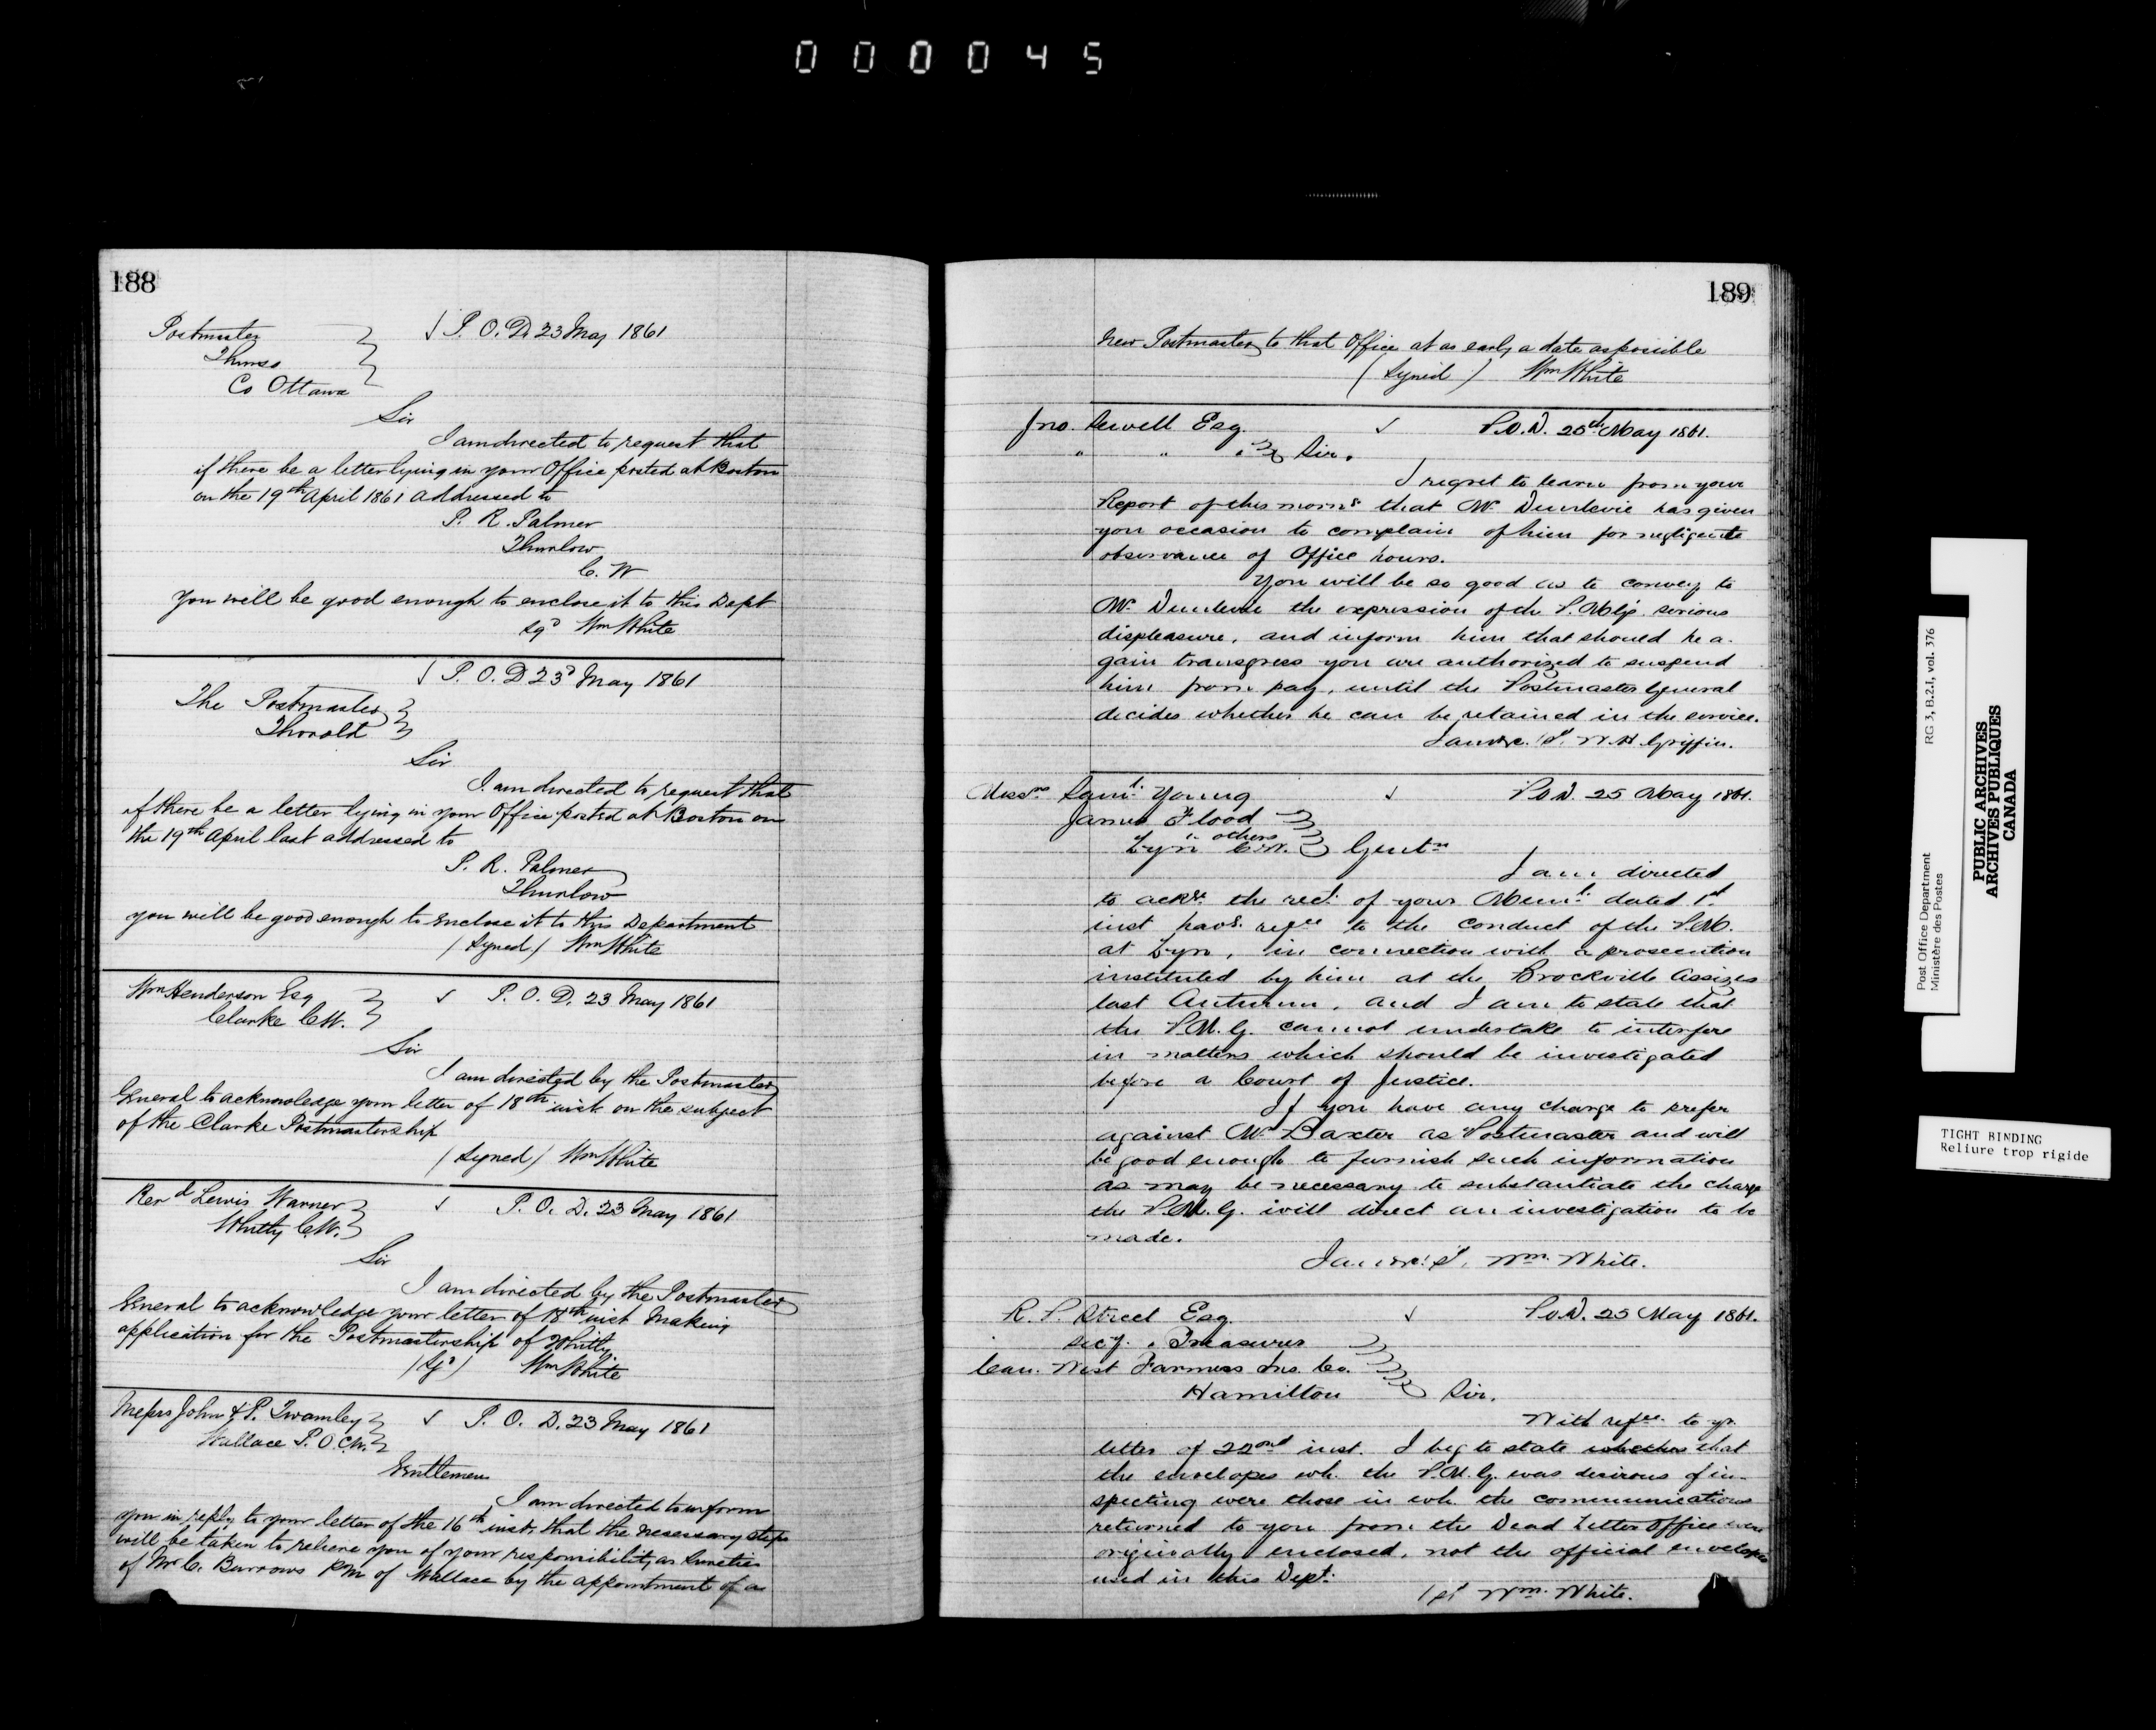 000045
188
Postmaster
Thurso
Co Ottawa
√ P. O. D. 23 May 1861
Sir
I am directed to request that
if there be a letter lying in your Office posted at Boston
on the 19th April 1861 addressed to
P. R. Palmer
Thurlow
C. W
You will be good enough to enclose it to this Dept
sgd Wm White
√ P. O. D 23d May 1861
The Postmaster
Thorold
Sir
I am directed to request that
if there be a letter lying in your Office posted at Boston on
the 19th April last addressed to
P. R. Palmer
Thurlow
you will be good enough to enclose it to this Department
(Signed) Wm White
Wm Henderson Esq
Clarke CW.
√ P. O. D. 23 May 1861
Sir
I am directed by the Postmaster
General to acknowledge your letter of 18th inst on the subject
of the Clarke Postmastership
(Signed) Wm White
Revd Lewis Warner
Whitby C.W.
√ P. O. D. 23 May 1861
Sir
I am directed by the Postmaster
General to acknowledge your letter of 18th inst making
application for the Postmastership of Whitby.
(Sgd) Wm White
Messrs John & P. Twamley
Wallace P. O. C.W.
√ P. O. D. 23 May 1861
Gentlemen
I am directed to inform
you in reply to your letter of the 16th inst, that the necessary steps
will be taken to relieve you of your responsibility as Sureties
of Mr C. Burrows P m of Wallace by the appointment of a
189
New Postmaster to that Office at as early a date as possible
(Signed) Wm White
Jno. Sewell Esq.
√ P.O.D. 25th May 1861.
" " " Sir.
I regret to learn from your
Report of this morng that Mr Dunlevie has given
you occasion to complain of him for negligente
observance of Office hours.
You will be so good as to convey to
Mr Dunlevie the expression of the P.M.G's serious
displeasure, and inform him that should he a-
gain transgress you are authorized to suspend
him from pay, until the Postmaster General
decides whether he can be retained in the service.
I am &c. sd. W. H. Griffin.
Messrs Saml. Young
James Flood
& others
Lyn C.W.
√ P.O.D. 25 May 1861.
Gentn
I am directed
to ackge the rect. of your Meml. dated 1st
inst havg. refce to the conduct of the P.M.
at Lyn, in connection with a prosecution
instituted by him at the Brockville Assizes
last Autumn, and I am to state that
the P.M.G. cannot undertake to interfere
in matters which should be investigated
before a Court of Justice.
If you have any charge to prefer
against Mr Baxter as Postmaster and will
be good enough to furnish such information
as may be necessary to substantiate the charge
the P.M.G. will direct an investigation to be
made.
I am &c. sd. Wm. White.
R. P. Street Esq.
Secy. & Treasurer
Can. West Farmers Ins. Co.
Hamilton
√ P.O.D. 25 May 1861.
Sir.
With refce. to yr.
letter of 22ond inst. I beg to state whether that
the envelopes wh. the P.M.G. was desirous of in-
specting were those in wh. the communications
returned to you from the Dead Letter Office were
originally enclosed, not the official envelopes
used in this Dept.
sd Wm. White.
Post Office Department
Ministère des Postes
RG 3, B.2.I, vol. 376
PUBLIC ARCHIVES
ARCHIVES PUBLIQUES
CANADA
TIGHT BINDING
Reliure trop rigide